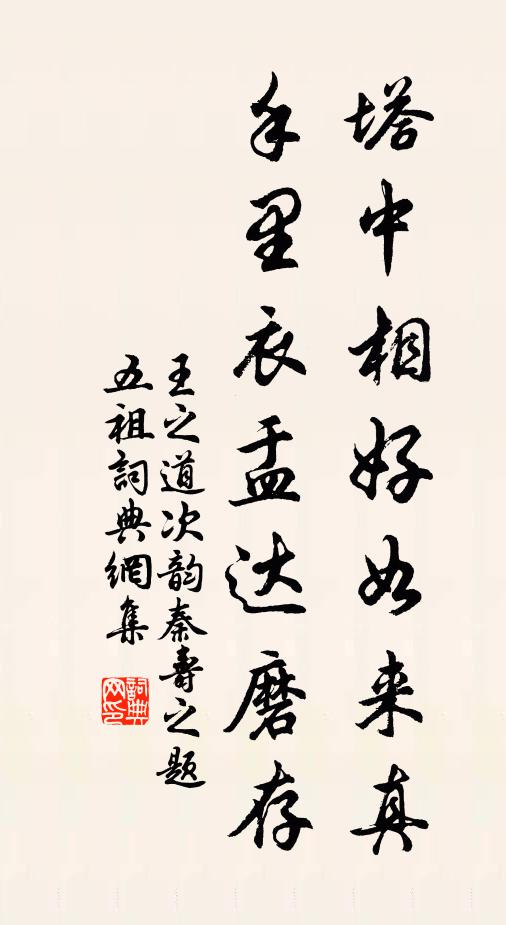 塔中相好如来真
手里衣盂达磨存
王之道次韵秦壽之题
五祖詞典網集
詞典
网印